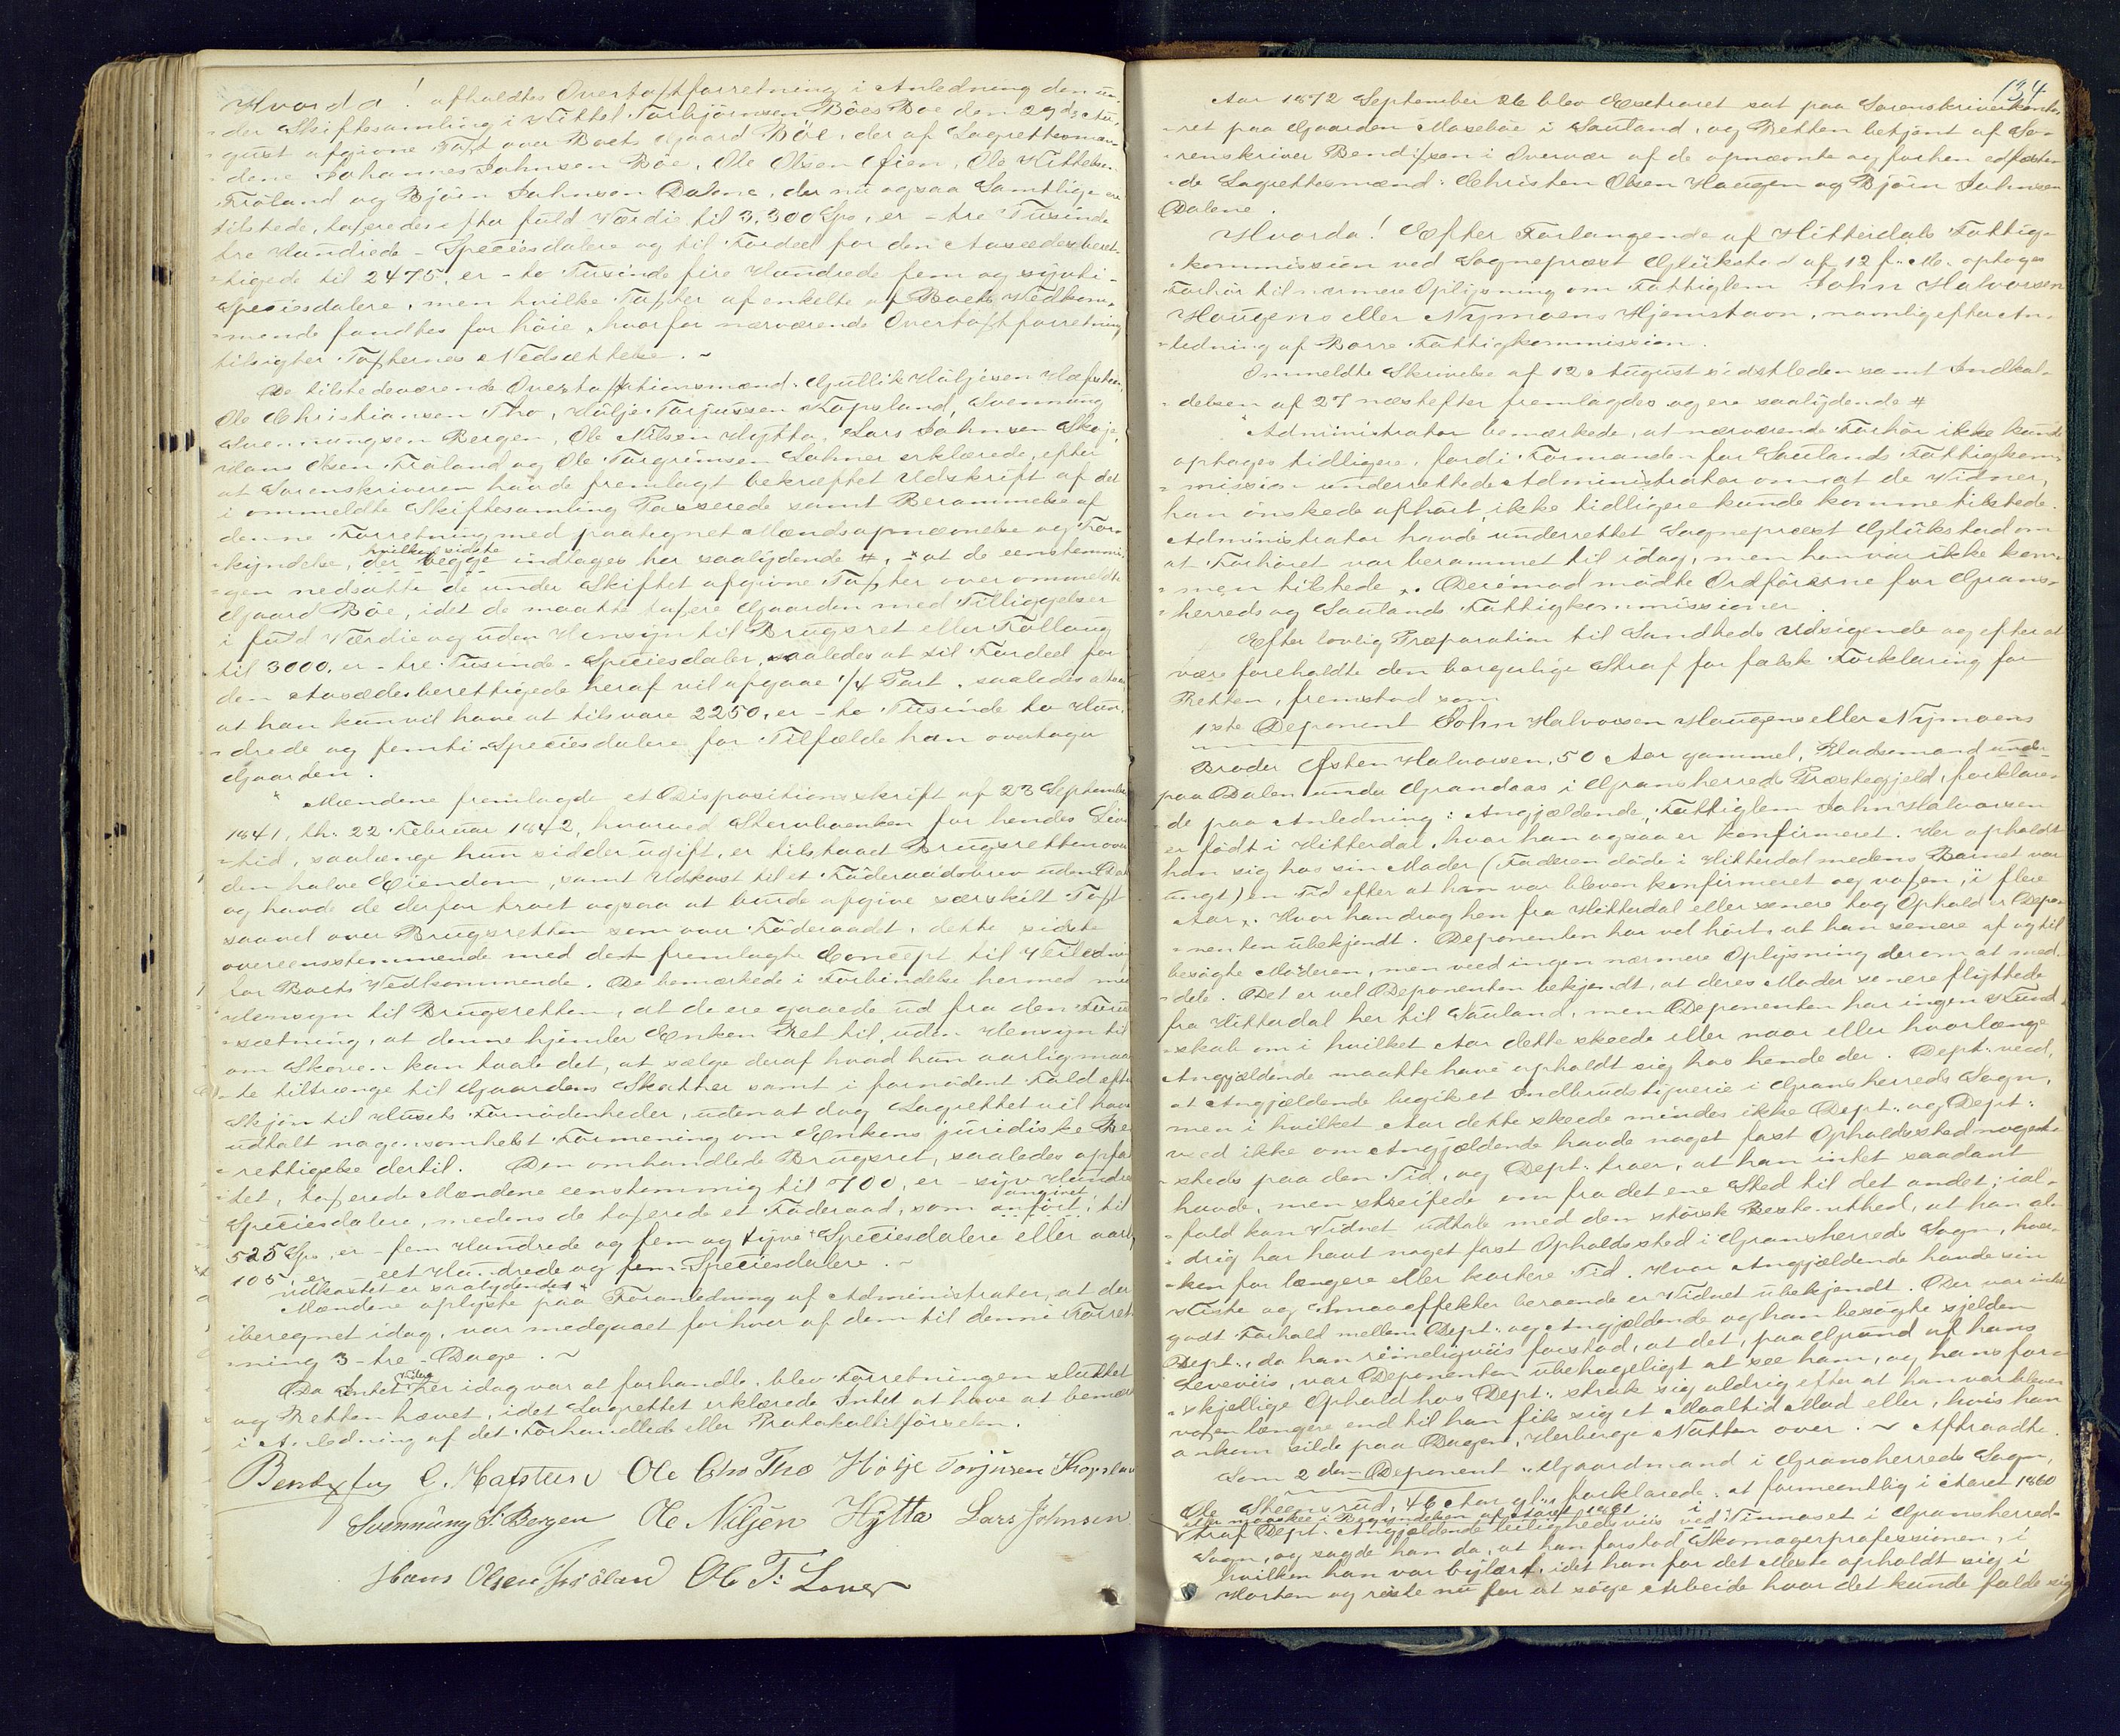 Hvorda! afholdtes Overtaxtforretning i Anledning den un-
der Skiftesamling i Kittel Torbjörnsen Böes Boe den 29de Au-
gust afgivne Taxt over Boets Gaard Böe, der af Lagrettesmæn-
dene Johannes Johnsen Böe, Ole Olsen Öien, Ole Kittelsen
Fröland og Björn Johnsen Dalene, der nu ogsaa Samtlige ere
tilstede, taxeredes efter fuld Værdie til 3,300 Spd, er - tre Tusinde
tre Hundrede - Speciesdalere og til Fordeel for den Aasædesberet-
tigede til 2475, er - to Tusinde fire Hundrede fem og syvti -
Speciesdalere, men hvilke Taxter af enkelte af Boets Vedkom-
mende fandtes for höie, hvorfor nærværende Overtaxtforretning
tilsigter Taxternes Nedsættelse. ~
De tilstedeværende Overtaxtationsmænd: Gullik Hüljesen Hæfsteen,
Ole Christiansen Tho, Hölje Torjussen Kopsland, Svennung
Svennungsen Bergen, Ole Nilsen Hytta, Lars Johnsen Skoje,
Hans Olsen Fröland og Ole Torgrimsen Lohner erklærede, efter
at Sorenskriveren havde fremlagt bekræftet Udskrift af det
i ommeldte Skiftesamling Passerede samt Berammelse af
denne Forretning med paategnet Mændsopnævnelse og For-
kyndelse, der begge hvilken sidste indtages her saalydende #, × at de eenstemmi-
gen nedsatte de under Skiftet afgivne Taxter over ommeldte
Gaard Böe, idet de maatte taxere Gaarden med Tilliggelser
i fuld Værdie og uden Hensyn til Brugsret eller Follaug
til 3000, er - tre Tusinde - Speciesdaler, saaledes at til Fordeel for
den Aasædesberettigede heraf vil afgaae 1/4 Part, saaledes altsaa
at han kun vil have at tilsvare 2250, er - to Tusinde to Hun-
drede og femti - Speciesdalere for Tilfælde han overtager
Gaarden.
Mændene fremlagde et Dispositionsskrift af 23 September
1841, th. 22 Februar 1842, hvorved Stervboenken for hendes Livs-
tid, saalænge hun sidder ugift, er tilstaaet Brugsretten over
den halve Eiendom, samt Udkast til et Föderaadsbrev uden Datum
og havde de derfor troet ogsaa at burde afgive særskilt Taxt
saavel over Brugsretten som over Föderaadet, dette sidste
overeensstemmende med det fremlagte Concept til Veiledning
for Boets Vedkommende. De bemærkede i Forbindelse hermed med
Hensyn til Brugsretten, at de ere gaaede ud fra den Forud-
sætning, at denne hjemler Enken Ret til, uden Hensyn til
om Skoven kan taale det, at sælge deraf hvad hun aarlig maat-
te tiltrænge til Gaardens Skatter samt i fornödent Fald efter
Skjön til Husets Fornödenheder, uden at dog Lagrettet vil have
udtalt nogensomhelst Formening om Enkens juridiske Be-
rettigelse dertil. Den omhandlede Brugsret, saaledes opfat-
tet, taxerede Mændene eenstemmig til 700, er - syv Hundrede
Speciesdalere, medens de taxerede et Föderaad, som anfört, angivet til
525 Spd, er - fem Hundrede og fem og tyve + Speciesdalere eller aarlig
105, er - eet Hundrede og fem - Speciesdalere. ~
udkastet er saalydende: ×
Mændene oplyste paa Foranledning af Administrator, at der
iberegnet idag, var medgaaet for hver af dem til denne Forret-
ning 3 - tre - Dage. ~
Da Intet videre her idag var at forhandle, blev Forretningen sluttet
og Retten hævet, idet Lagrettet erklærede Intet at have at bemærke
i Anledning af det Forhandlede eller Protokoltilförselen.
Bendixsen G. Hæfsteen Ole Chs Tho Hölje Torjusen Kopsland
Svennüng S. Bergen Ole Nilsen Hytta Lars Johnsen
Hans Olsen Fröland Ole T. Loner
134
Aar 1872 September 26 blev Extraret sat paa Sorenskriverkonto-
ret paa Gaarden Maseböe i Sauland, og Retten betjent af So-
renskriver Bendixsen i Overvær af de opnævnte og forhen edfæste-
de Lagrettesmænd: Christen Olsen Haugen og Björn Johnsen
Dalene.
Hvorda! Efter Forlangende af Hitterdals Fattig-
kommission ved Sogneprest Glükstad af 12 f. M. optoges
Forhör til nærmere Oplysning om Fattiglem John Halvorsen
Haugens eller Nymoens Hjemstavn, navnlig efter An-
ledning af Borre Fattigkommission.
Ommeldte Skrivelse af 12 August sidstleden samt Indkal-
delsen af 27 næstefter fremlagdes og ere saalydende #
Administrator bemærkede, at nærværende Forhör ikke kunde
optages tidligere, fordi Formanden for Saulands Fattigkom-
mission underrettede Administrator om at de Vidner,
han önskede afhört, ikke tidligere kunde komme tilstede.
Administrator havde underrettet Sogneprest Glükstad om
at Forhöret var berammet til idag, men han var ikke kom-
men tilstede ×. Derimod mödte Ordförerne for Grans-
herreds og Saulands Fattigkommissioner.
Efter lovlig Præparation til Sandheds Udsigende og efter at
være foreholdte den borgerlige Straf for falsk Forklaring for
Retten, fremstod som
1ste Deponent John Halvorsen Haugens eller Nymoens
Broder Östen Halvorsen, 50 Aar gammel, Pladsemand under
paa Dalen under Grandaas i Gransherreds Præstegjeld, forklare-
de paa Anledning: Angjældende, Fattiglem John Halvorsen
er födt i Hitterdal, hvor han ogsaa er konfirmeret. Her opholdt
han sig hos sin Moder (Faderen döde i Hitterdal medens Barnet var
ungt) en Tid efter at han var bleven konfirmeret og voxen, i flere
Aar ×. Hvor han drog hen fra Hitterdal eller senere tog Ophold er Depo-
nenten ubekjendt. Deponenten har vel hört, at han senere af og til
besögte Moderen, men veed ingen nærmere Oplysning derom at med-
dele. Det er vel Deponenten bekjendt, at deres Moder senere flyttede
fra Hitterdal her til Sauland, men Deponenten har ingen Kund-
skab om i hvilket Aar dette skeede eller naar eller hvorlænge
Angjældende maatte have opholdt sig hos hende der. Dept. veed,
at Angjældende begik et Indbrudstyverie i Gransherreds Sogn,
men i hvilket Aar dette skeede mindes ikke Dept. og Dept.
veed ikke om Angjældende havde noget fast Opholdssted nogen-
steds paa den Tid, og Dept. troer, at han intet saadant
havde, men streifede om fra det ene Sted til det andet; ial-
fald kan Vidnet udtale med den störste Bestemthed, at han al-
drig har havt noget fast Opholdssted i Gransherreds Sogn, hver-
ken for længere eller kortere Tid. Hvor Angjældende havde sin
Kiste og Smaaeffekter beroende er Vidnet ubekjendt. Der var intet
godt Forhold mellem Dept. og Angjældende og han besögte sjelden
Dept., da han rimeligviis forstod, at det, paa Grund af hans
Leveviis, var Deponenten ubehageligt at see ham, og hans for-
skjellige Ophold hos Dept. strak sig aldrig efter at han var bleven
voxen længere end til han fik sig et Maaltid Mad eller, hvis han
ankom silde paa Dagen, Herberge Natten over. ~ Aftraadte.
Som 2den Deponent, Gaardmand i Gransherreds Sogn,
Ole Skeensrud, 46 Aar gl. forklarede: at formeentlig i Aaret 1860
eller maaskee i Begyndelsen af Aaret 1861
traf Dept. Angjældende leilighedsviis ved Tinnoset i Gransherreds
Sogn, og sagde han da, at han forstod Skomagerprofessionen, i
hvilken han var bylært, idet han for det Meste opholdt sig i
Horten og reiste nu for at söge Arbeide hvor det kunde falde sig